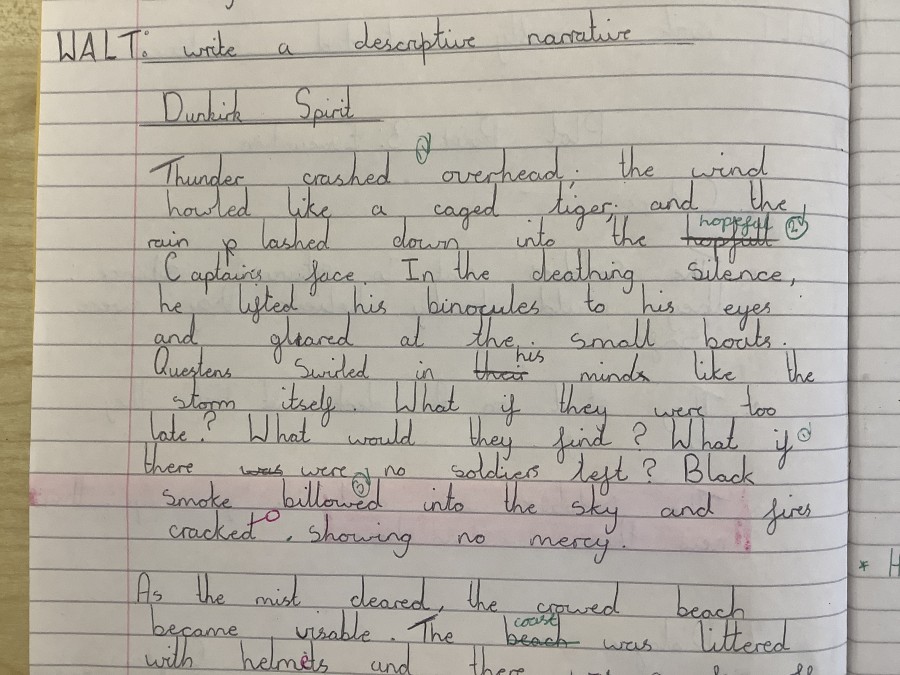 WALT: write a descriptive narrative
Dunkirk Spirit
Thunder crashed overhead; the wind
howled like a caged tiger; and the
hopefull
rain lashed down into the hopfull
Captains face. In the deathing silence,
he lifted his binocules to his eyes
and gleared at the small boats.
his
Questens Swirled in their minds like the
storm itself. What if they were too
late? What would they find? What if
there was were no soldiers left? Black
smoke billowed into the sky and fires
cracked, showing no mercy.
* H
As the mist cleared, the crowed beach
coast
became visable. The beach was littered
with helmets and there